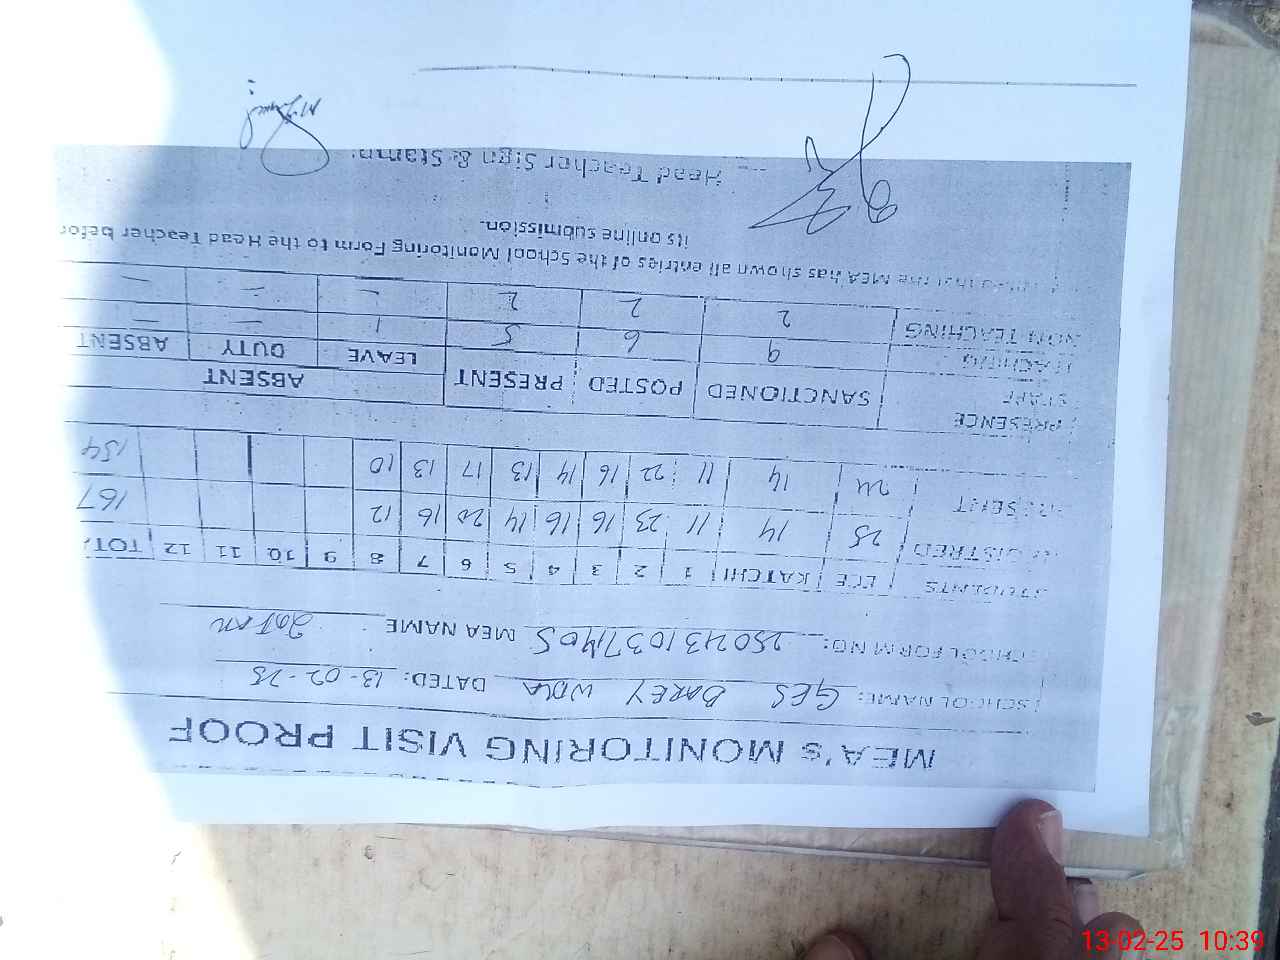 MEA's MONITORING VISIT PROOF
SCHOOL NAME: GES BAREY WOLA DATED: 13-02-25
SCHOOL FORM NO: MEA NAME
STUDENTS ECE KATCHI 1 2 3 4 5 6 7 8 9 10 11 12 TOTA
REGISTRED 25 14 11 23 16 16 14 20 16 12 167
PRESENT 24 14 11 22 16 14 13 17 13 10 154
PRESENCE STAFF SANCTIONED POSTED PRESENT ABSENT
LEAVE DUTY ABSENT
TEACHING 9 6 5 1 – –
NON TEACHING 2 2 2 – – –
that the MEA has shown all entries of the School Monitoring Form to the Head Teacher befor
its online submission.
Head Teacher Sign & Stamp:
13-02-25 10:39